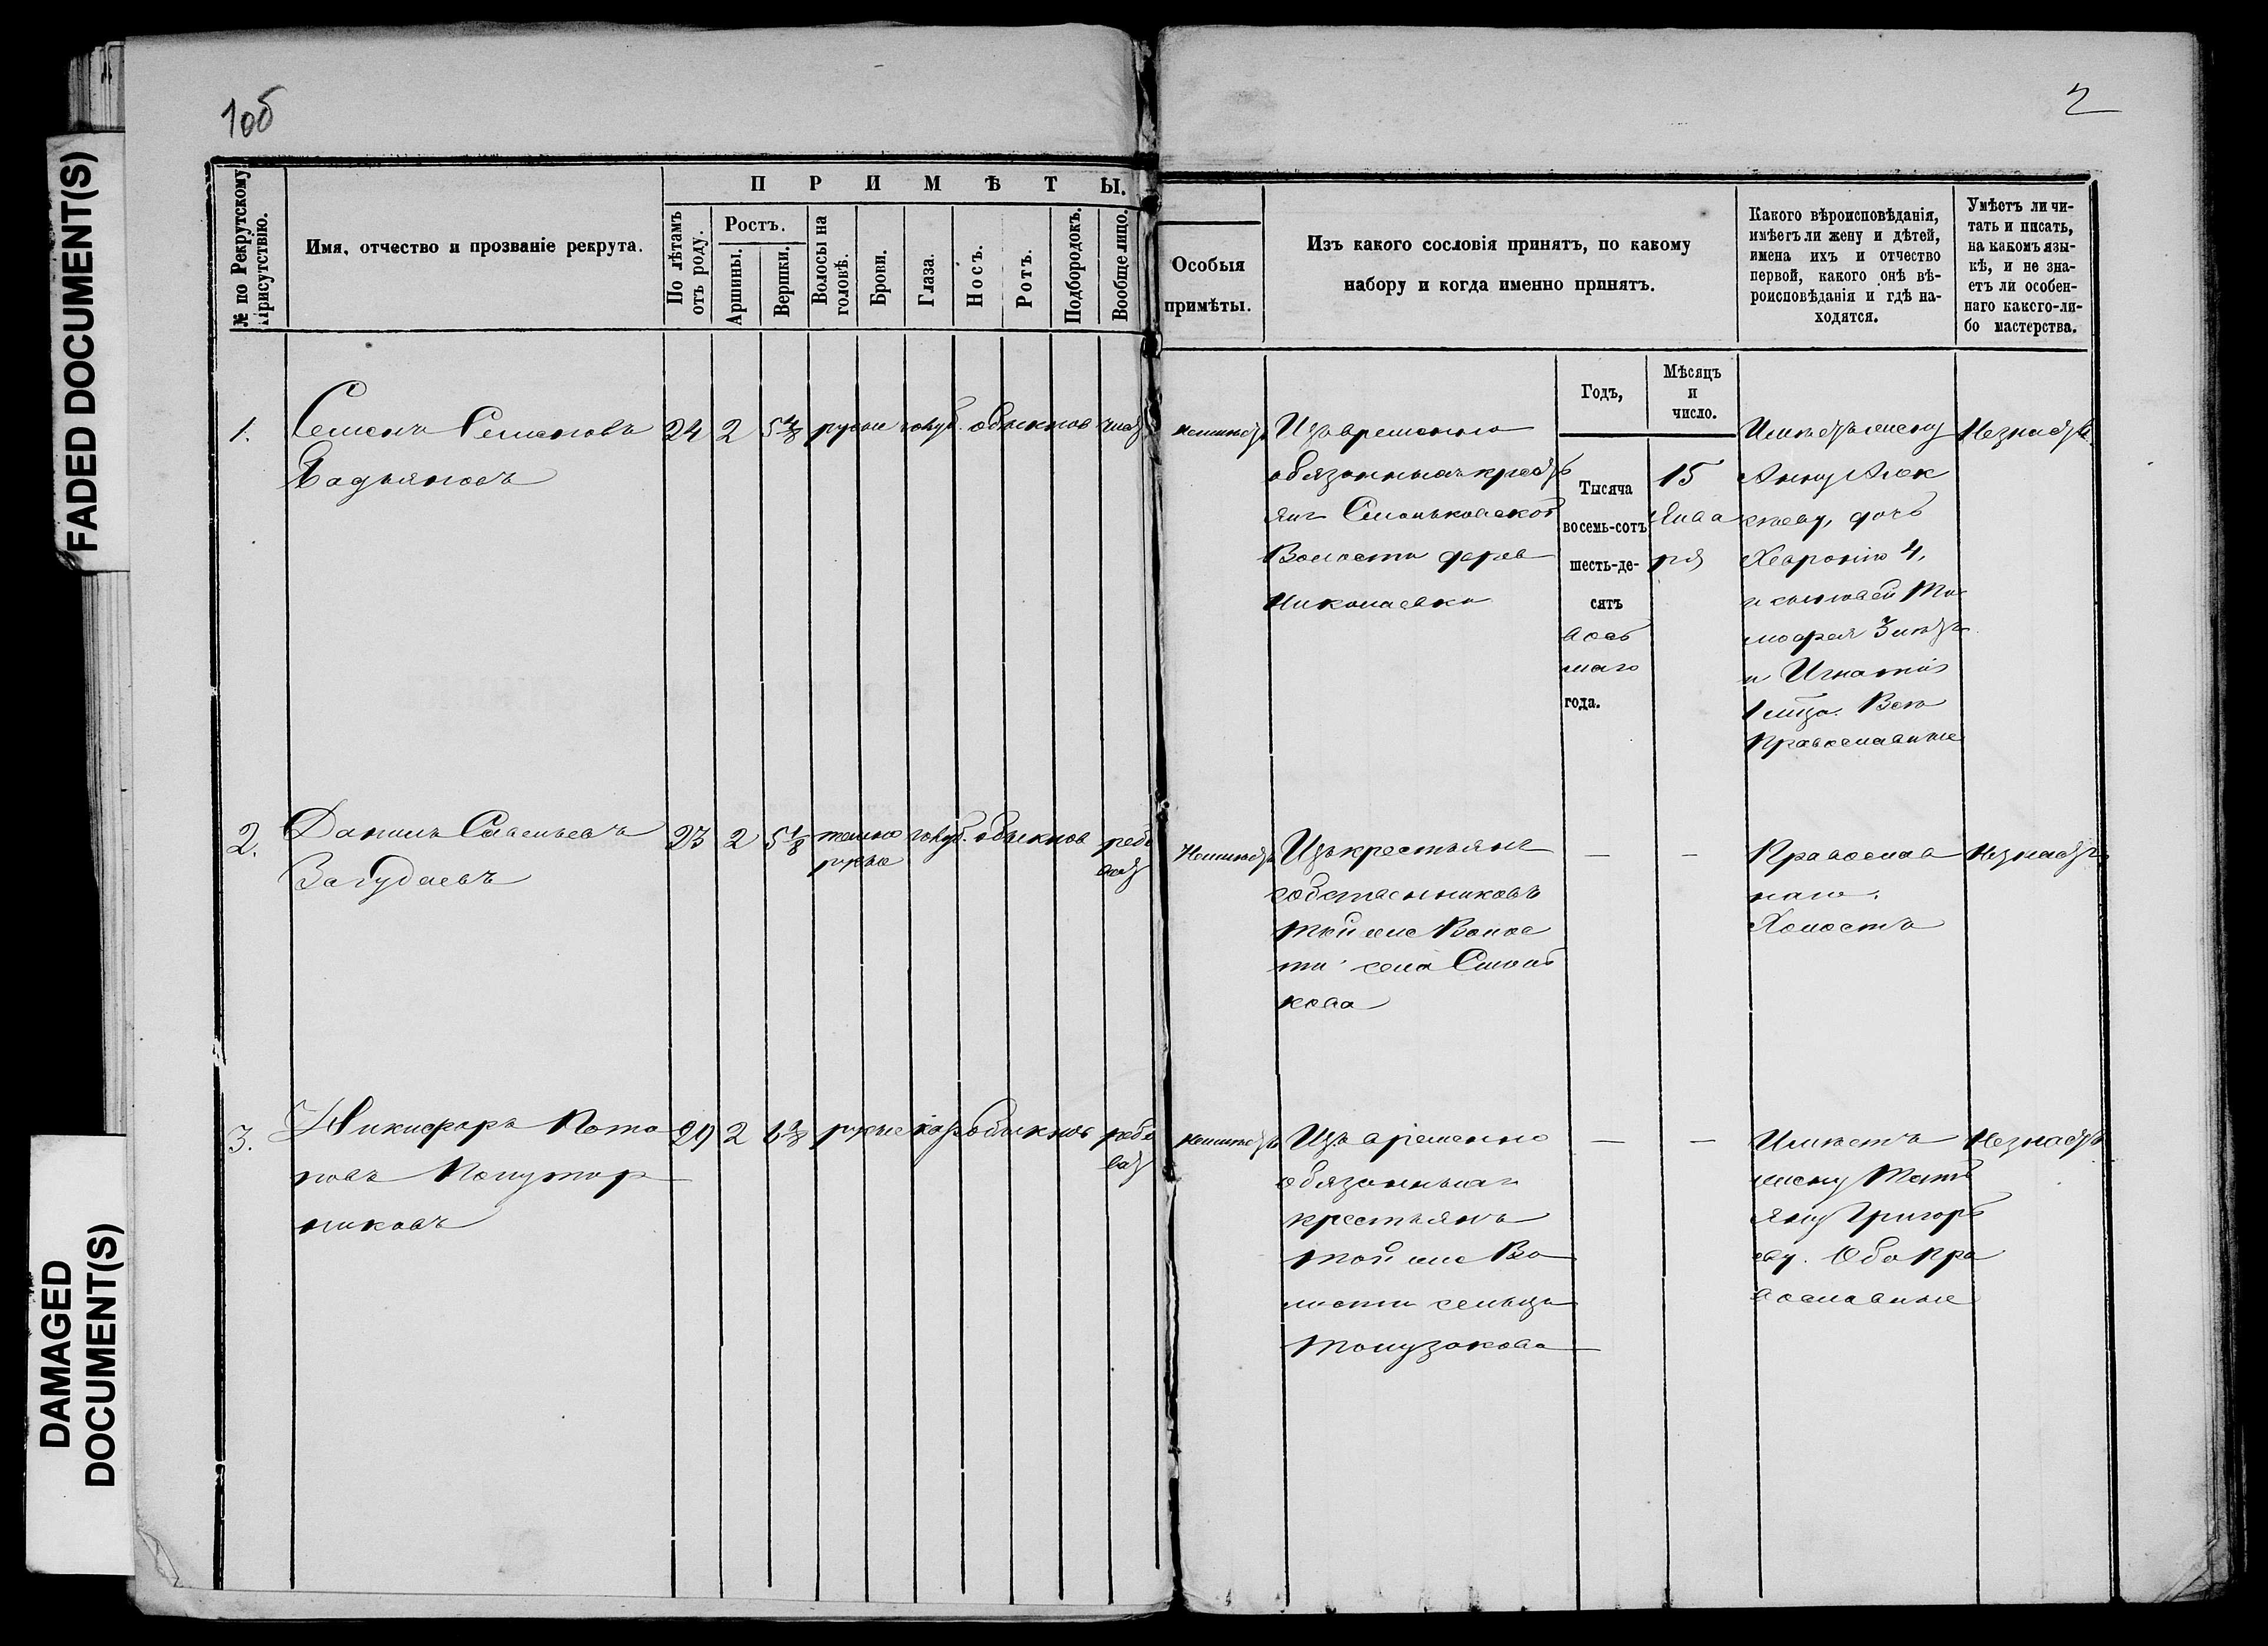 1об
2
FADED DOCUMENT(S)
DAMAGED
DOCUMENT(S)
№ по Рекрутскому
присутствію.
Имя, отчество и прозваніе рекрута.
ПРИМѢТЫ.
По лѣтамъ
отъ роду.
Ростъ.
Аршины.
Вершки.
Волосы на
головѣ.
Брови.
Глаза.
Носъ.
Ротъ.
Подбородокъ.
Вообще лицо.
Особыя
примѣты.
Изъ какого сословія принятъ, по какому
набору и когда именно принятъ.
Годъ,
Мѣсяцъ
и
число.
Какого вѣроисповѣданія,
имѣетъ ли жену и дѣтей,
имена ихъ и отчество
первой, какого онѣ вѣ-
роисповѣданія и гдѣ на-
ходятся.
Умѣетъ ли чи-
тать и писать,
на какомъ язы-
кѣ, и не зна-
етъ ли особен-
наго какого-ли-
бо мастерства.
1.
Семенъ Семеновъ
24
2
5 4/8
русые
голуб.
обыкнов
чис
неимѣетъ
Изъ временно
обязанныхъ крест
янъ Смольковской
Волости дерев
Николаевки
Тысяча
восемь-сотъ
шесть-де-
сятъ
вось
маго
года.
15
Янва
ря
Имѣетъ жену
Анну Алек
сѣеву, дочь
Хевронію 4,
и сыновей Ти
мофея 3 лѣтъ
и Игнатія
1 мѣца. Всѣ
Православные
Незнаетъ
2.
Данилъ Савельевъ
Вагудаевъ
23
2
5 1/8
темно
русые
голуб.
обыкнов
рябо
ват
Неимѣетъ
Изъ крестьянъ
собственниковъ
той же Волос
ти села Смоль
кова
—
—
Православ
наго.
Холостъ
Незнаетъ
3.
Никифоръ Пота
повъ Полутор
никовъ
29
2
русые
кар
обыкнов
рябо
ват
неимѣетъ
Изъ временно
обязанныхъ
крестьянъ
той же Во
лости сельца
Толузакова
—
—
Имѣетъ
жену Тать
яну Григорь
еву. Оба Пра
вославные
Незнаетъ